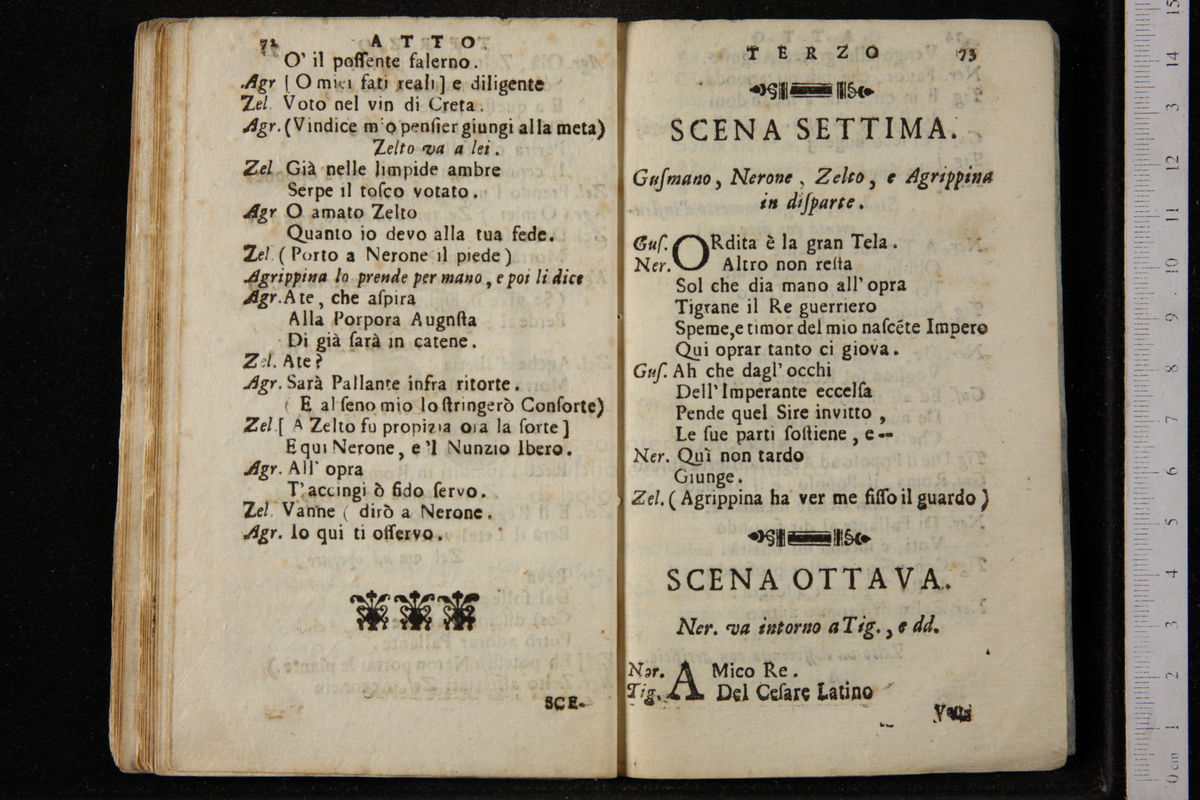 72 ATTO
O' il poſſente falerno.
Agr [O miei fati reali] e diligente
Zel. Voto nel vin di Creta.
Agr. (Vindice mio penſier giungi alla meta)
Zelto va a lei.
Zel Già nelle limpide ambre
Serpe il toſco votato.
Agr O amato Zelto
Quanto io devo alla tua fede.
Zel (Porto a Nerone il piede)
Agrippina lo prende per mano, e poi li dice
Agr. A te, che aſpira
Alla Porpora Augnſta
Di già ſarà in catene.
Zel. A te?
Agr. Sarà Pallante infra ritorte.
(E al ſeno mio lo ſtringerò Conſorte)
Zel. [A Zelto fu propizia ora la ſorte]
E qui Nerone, e 'l Nunzio Ibero.
Agr. All' opra
T'accingi ò fido ſervo.
Zel. Vanne (dirò a Nerone.
Agr. Io qui ti oſſervo.
SCE-
TERZO 73
SCENA SETTIMA.
Guſmano, Nerone, Zelto, e Agrippina
in diſparte.
Guſ. ORdita è la gran Tela.
Ner. Altro non reſta
Sol che dia mano all' opra
Tigrane il Re guerriero
Speme, e timor del mio naſcẽte Impero
Qui oprar tanto ci giova.
Guſ. Ah che dagl' occhi
Dell' Imperante eccelſa
Pende quel Sire invitto,
Le ſue parti ſoſtiene, e--
Ner. Quì non tardo
Giunge.
Zel. (Agrippina ha ver me fiſſo il guardo)
SCENA OTTAVA.
Ner. va intorno a Tig., e dd.
Ner. AMico Re.
Tig. Del Ceſare Latino
15
14
13
12
11
10
9
8
7
6
5
4
3
2
1
0 cm